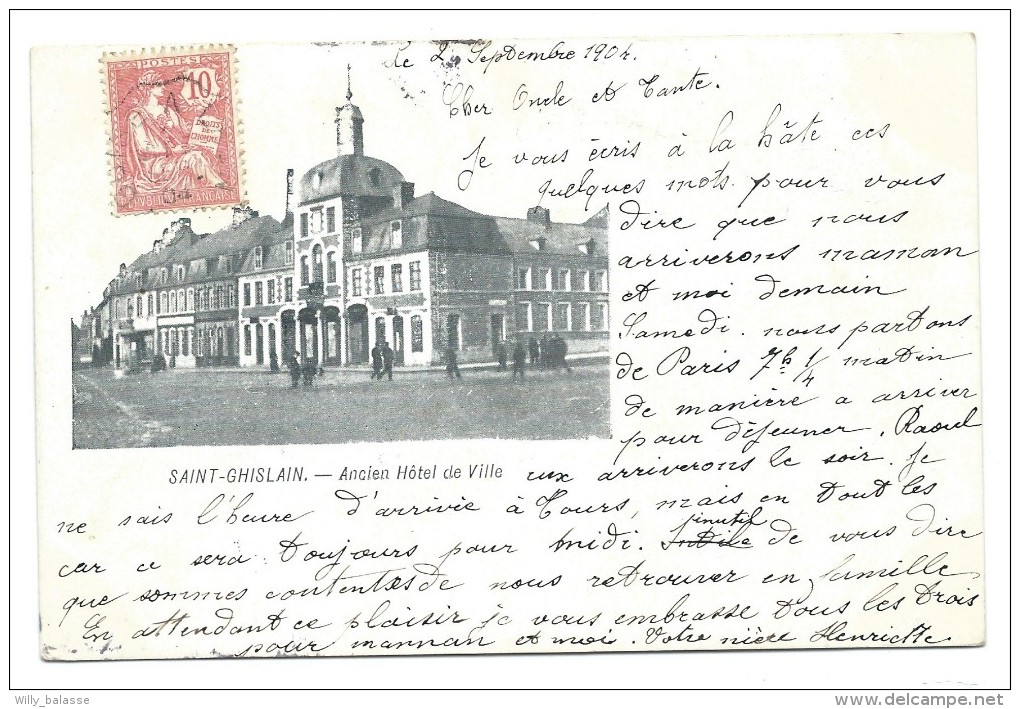 Le 2 Septembre 1904.
POSTES
10
DROITS
DE
L'HOMME
REPUBLIQUE FRANÇAISE
Cher Oncle et Tante.
Je vous écris à la hâte ces
quelques mots pour vous
dire que nous
arriverons maman
et moi demain
Samedi. nous partons
de Paris 7h 1/4 matin
de manière a arriver
pour déjeuner. Raoul
SAINT-GHISLAIN. — Ancien Hôtel de Ville
eux arriverons le soir. Je
ne sais l'heure d'arrivée à Tours, mais en tout les
car ce sera toujours pour midi. inutil de vous dire
que sommes contentes de nous retrouver en famille
En attendant ce plaisir je vous embrasse tous les trois
pour mannan et moi. Votre nièce Henriette
Willy_balasse
www.delcampe.net